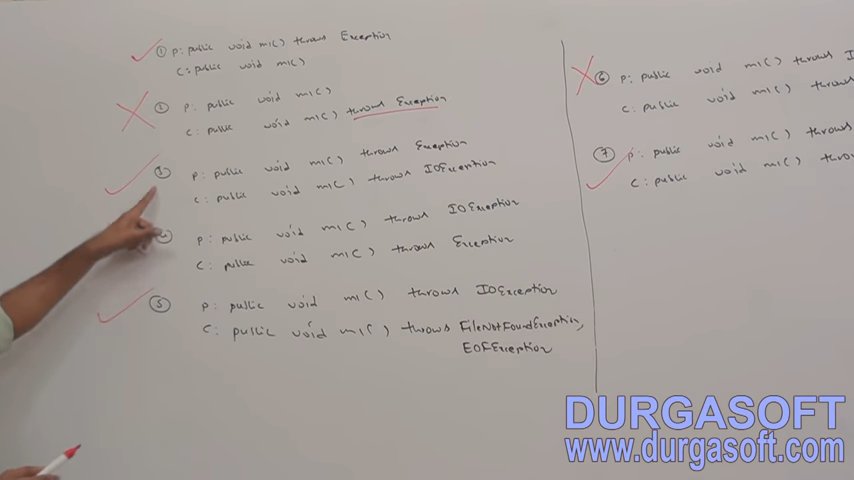 ① P: public void m1() throws Exception
C: public void m1()
② P: public void m1()
C: public void m1() throws Exception
③ P: public void m1() throws Exception
C: public void m1() throws IOException
P: public void m1() throws IOException
C: public void m1() throws Exception
⑤ P: public void m1() throws IOException
C: public void m1() throws FileNotFoundException,
EOFException
⑥ P: public void m1() throws
C: public void m1() throws
⑦ P: public void m1() throws
C: public void m1()
DURGASOFT
www.durgasoft.com